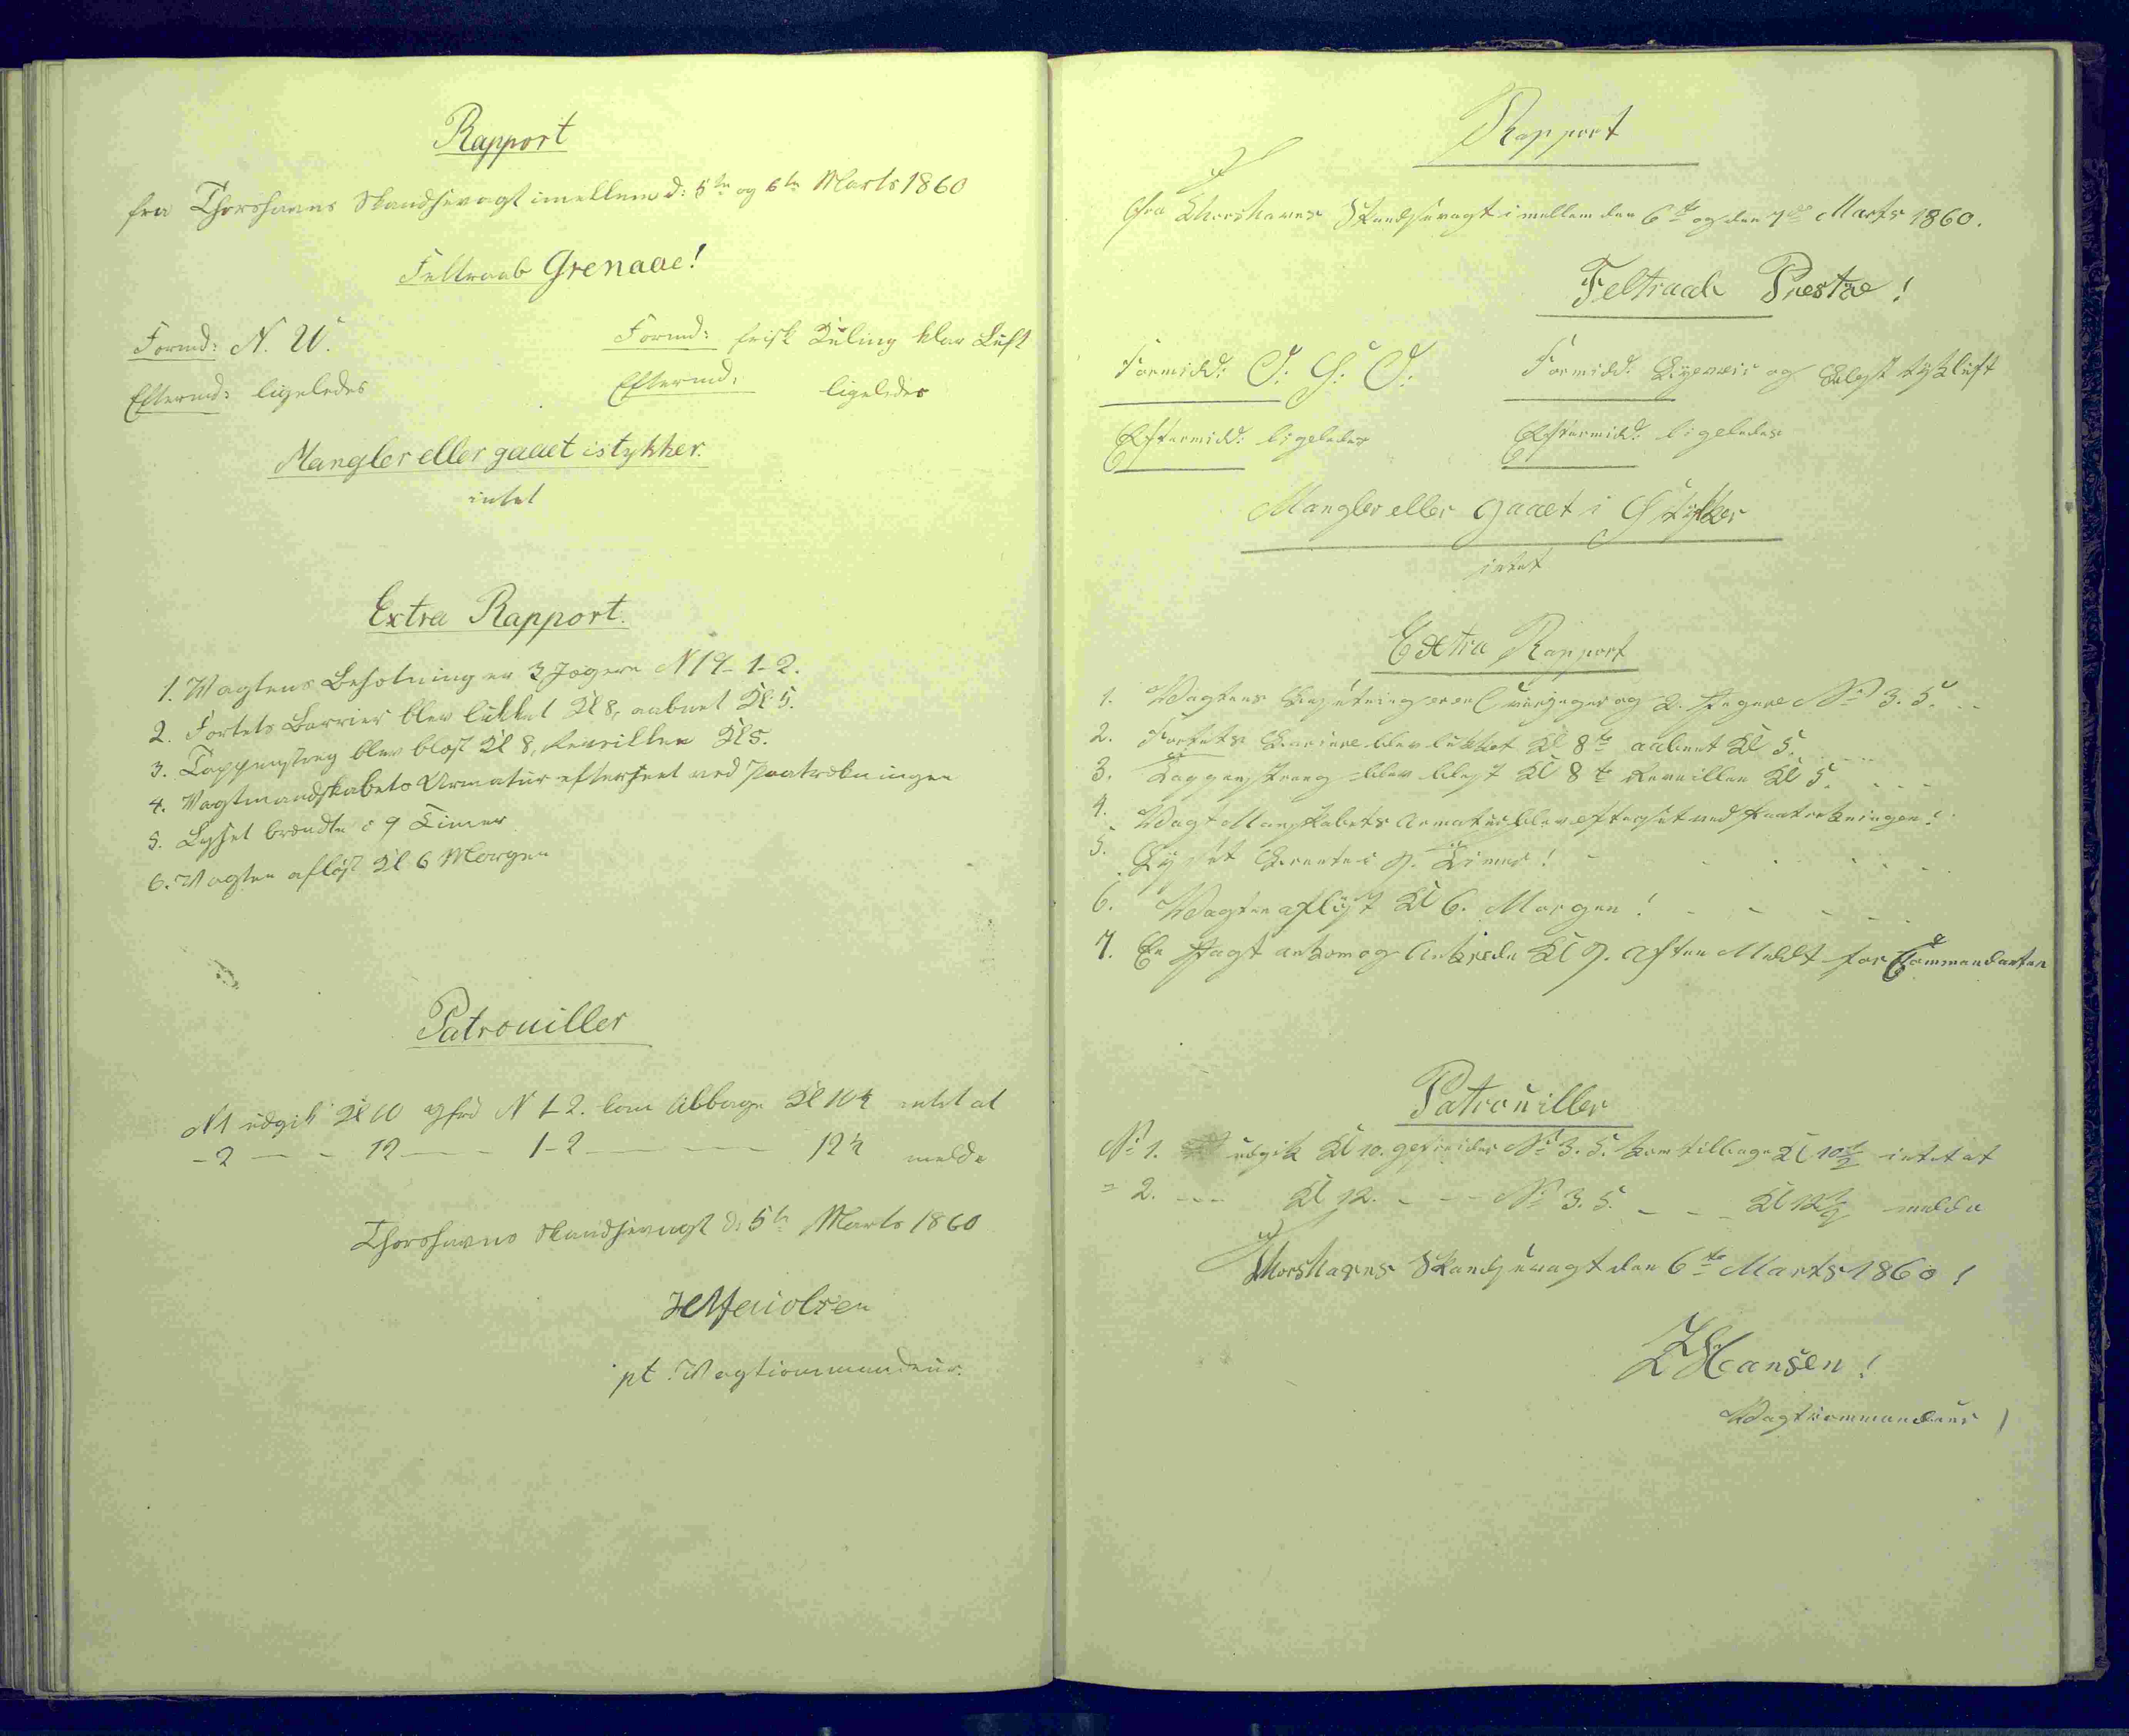 Rapport
fra Thorshavns Skandsevagt imellem d: 5te og 6te Marts 1860
Feltraab Grenaae!
Formd: N. V. Formd: frisk Kuling klar Luft
Eftermd: ligeledes Eftermd: ligeledes
Mangler eller gaaet istykker.
intet
Extra Rapport.
1. Vagtens Besætning er 3 Jægere N 19- 1-2.
2. Fortets Barrier blev lukket Kl 8, aabnet Kl 5.
3. Tappenstreg blev blæst Kl 8, Reveillen Kl 5.
4. Vagtmandskabets Armatur efterseet ved Paatrækningen
5. Lyset brændte i 9 Timer
6. Vagten afløst Kl 6 Morgen
Patrouiller
N1 udgik Kl 10 N 1-2. kom tilbage Kl 10½ intet at
-2 — - 12 — - 1-2 — — — 12½ melde
Thorshavns Skandsevagt d: 5te Marts 1860
pt. Vagtcommandeur.
Rapport
fra Thorshavns Skandsevagt imellem den 6te og den 7de Marts 1860.
Feltraab Præstøe!
Formidd: S: O: Formidd: og tyk luft
Eftermidd: ligeledes Eftermidd: ligeledes
Mangler eller gaaet i Stykker
intet
Extra Rapport
1. Vagtens Besætning er en Overjæger og 2 Jægere No 3. 5.
2. Fortets Barriere blev lukket Kl 8te aabnet Kl 5.
3. Tappenstreg blev blæst Kl 8te Reveillen Kl 5.
4. Vagt Manskabets Armatur blev efterset ved Paatrækningen!
5. Lyset Brente i 9. Timer!
6. Vagten afløst Kl 6. Morgen!
7. En Jagt ankom og Ankrede Kl 9. Aften Meldt for Commandanten
Patrouiller
No 1. udgik Kl 10. gefreider No 3. 5. kom tilbage Kl 10½ intet at
= 2. --- Kl 12. - - - No 3. 5. - - - Kl 12½ melde
Thorshavns Skandsevagt den 6te Marts 1860!
Hansen!
Vagtcommandeur